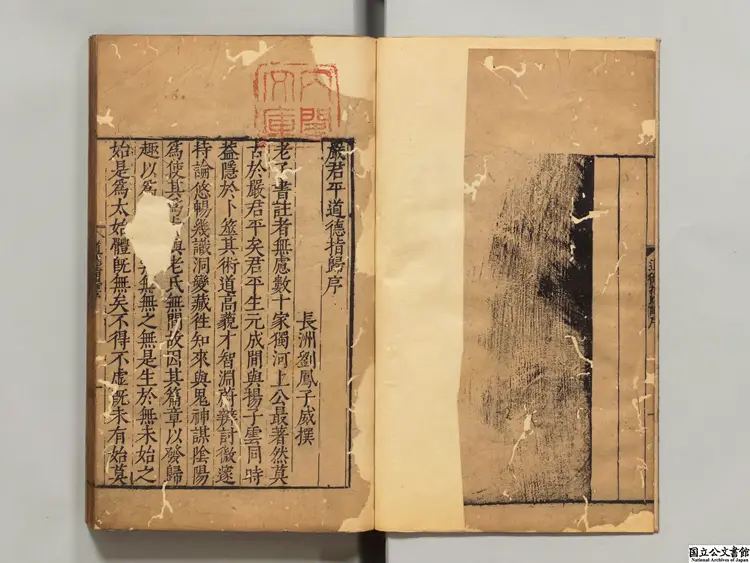 嚴君平道德指歸序
長洲劉鳳子威撰
老子書註者無慮數十家獨河上公最著然莫
古於嚴君平矣君平生元成閒與揚子雲同時
葢隱於卜筮其術道高藐才智淵蔚辯討微邃
持論悠暢幾識洞變藏徃知來與鬼神謀陰陽
爲使其與老氏無間故因其篇章以發歸
趣以爲無無之無是生於無未始之
始是爲太始體旣無矣不得不虛旣未有始莫
內閣
文庫
国立公文書館
National Archives of Japan